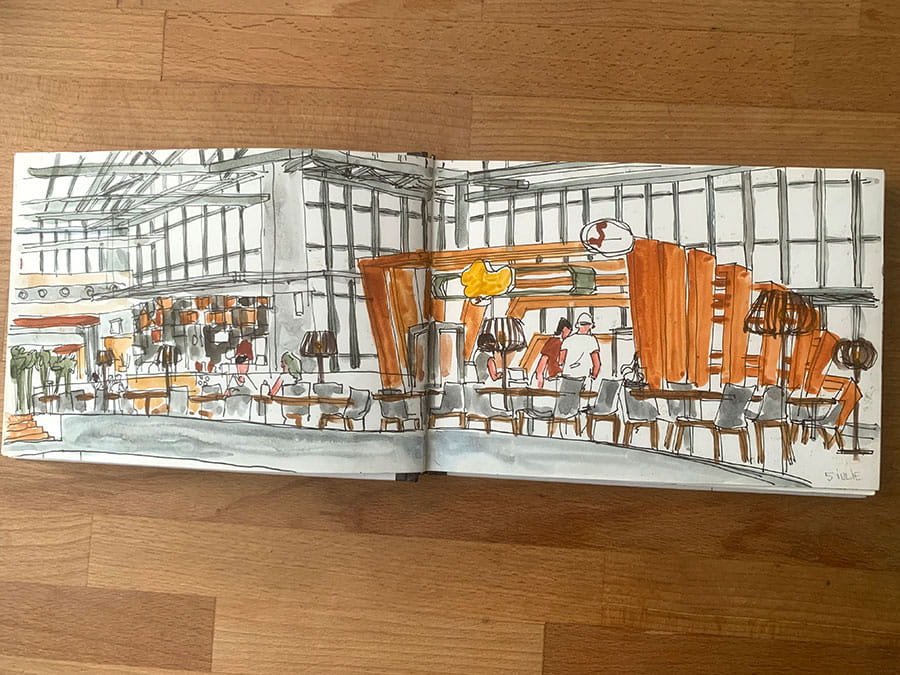 5 iULIE